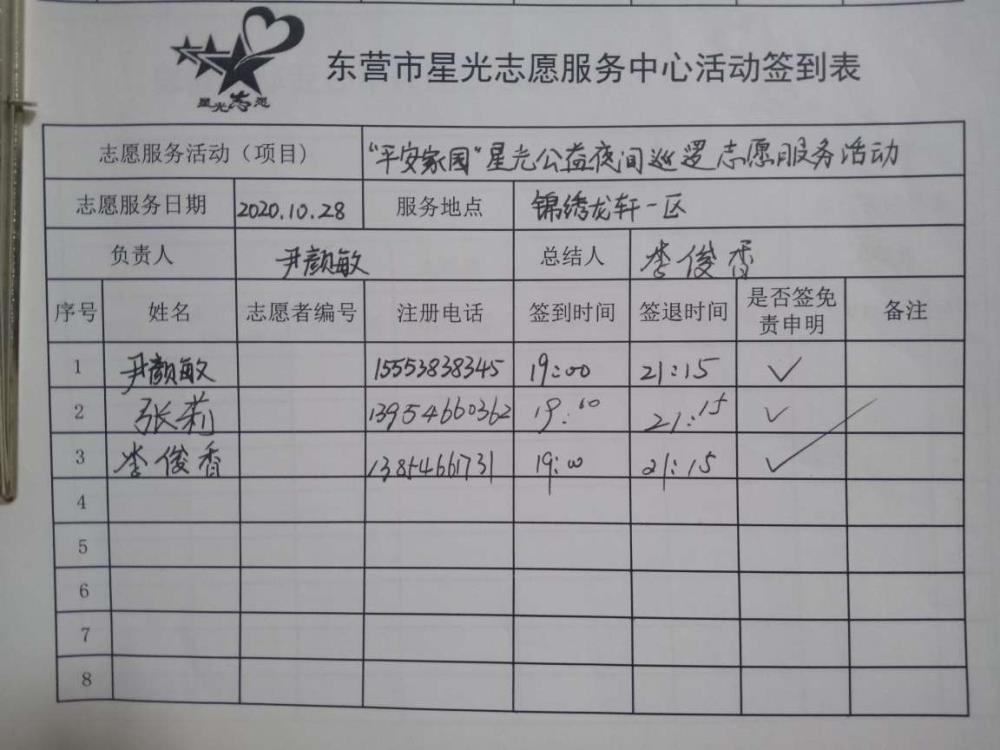 星光志愿
东营市星光志愿服务中心活动签到表
志愿服务活动（项目） “平安家园”星光公益夜间巡逻志愿服务活动
志愿服务日期 2020.10.28 服务地点 锦绣龙轩一区
负责人 尹颜敏 总结人 李俊香
序号 姓名 志愿者编号 注册电话 签到时间 签退时间 是否签免责申明 备注
1 尹颜敏 15553838345 19:00 21:15 ✓
2 张莉 13954660362 19:00 21:15 ✓
3 李俊香 13854661731 19:00 21:15 ✓
4
5
6
7
8